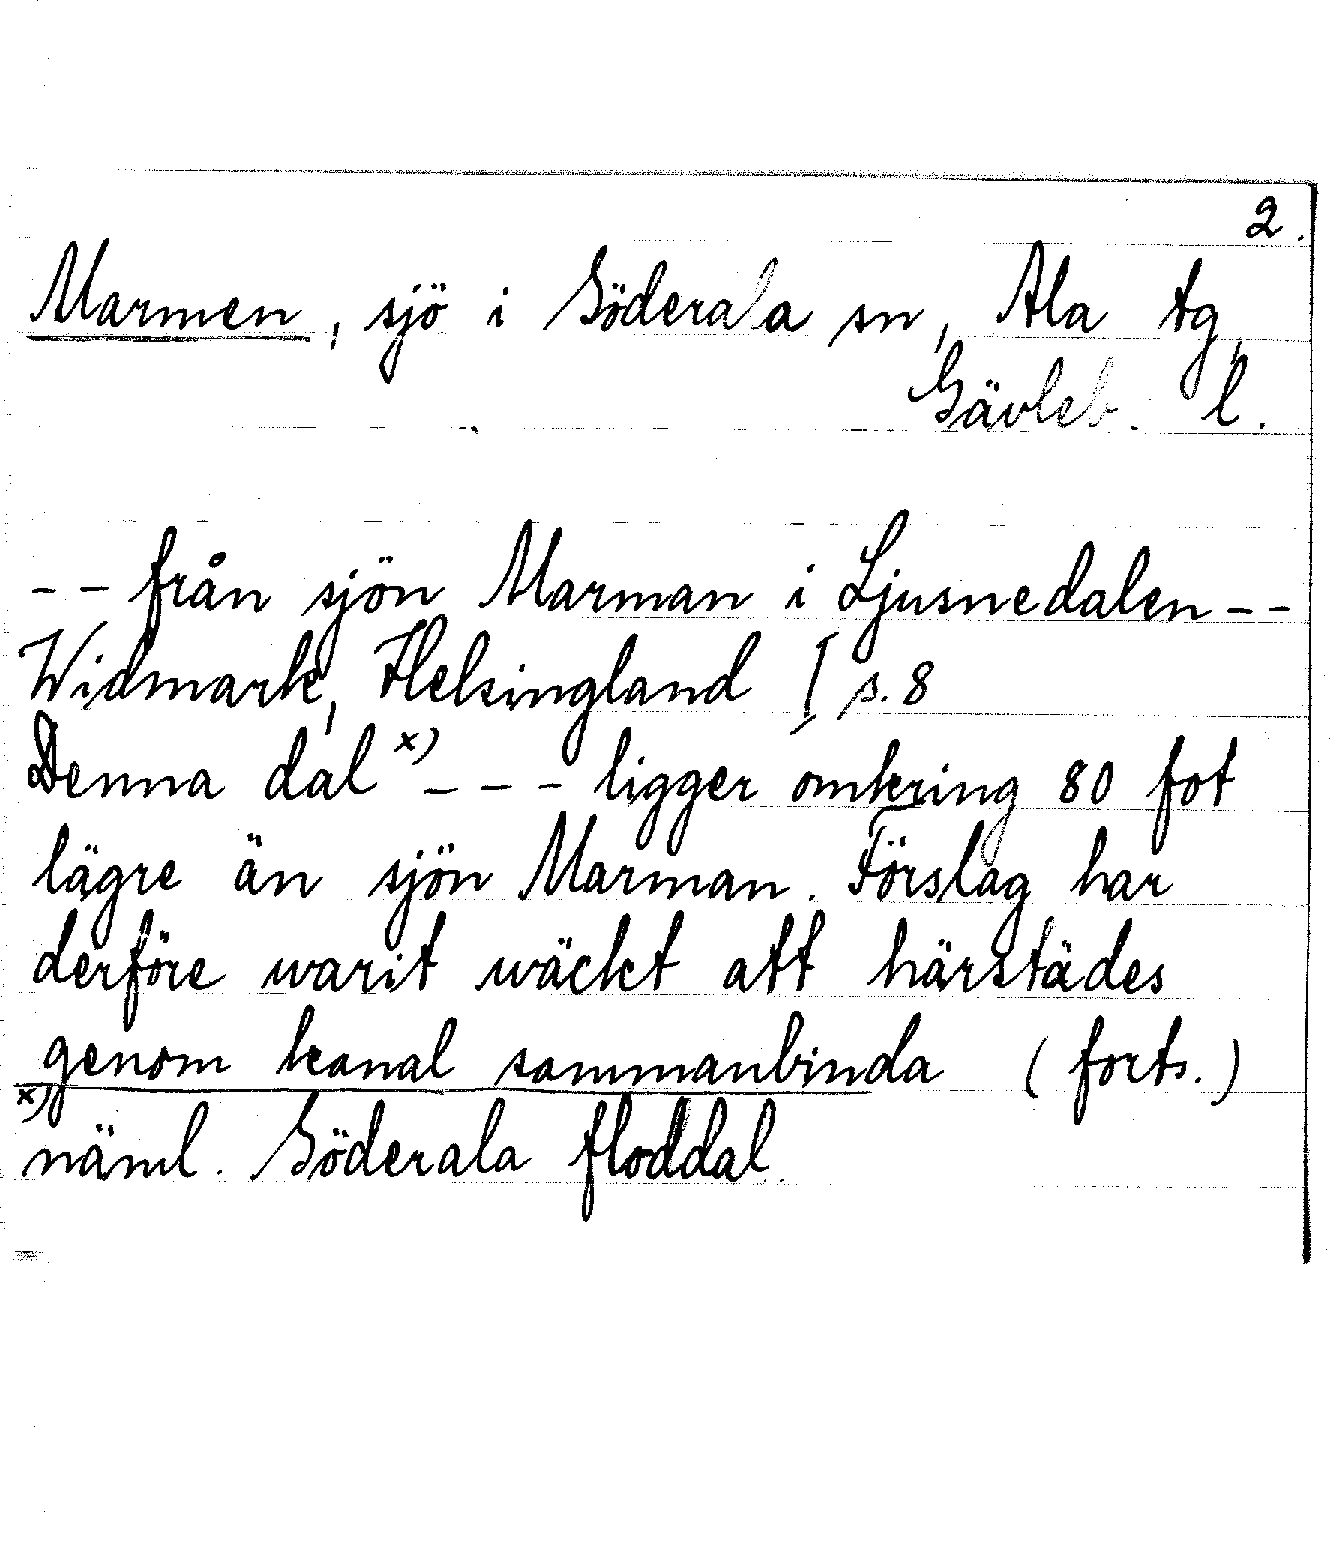 2.
Marmen, sjö i Söderala sn, Ala tg,
Gävleb. l.
-- från sjön Marman i Ljusnedalen --
Widmark, Helsingland I s. 8
Denna dal x) --- ligger omkring 80 fot
lägre än sjön Marman. Förslag har
derföre warit wäckt att härstädes
genom kanal sammanbinda (forts.)
x)
näml. Söderala floddal.